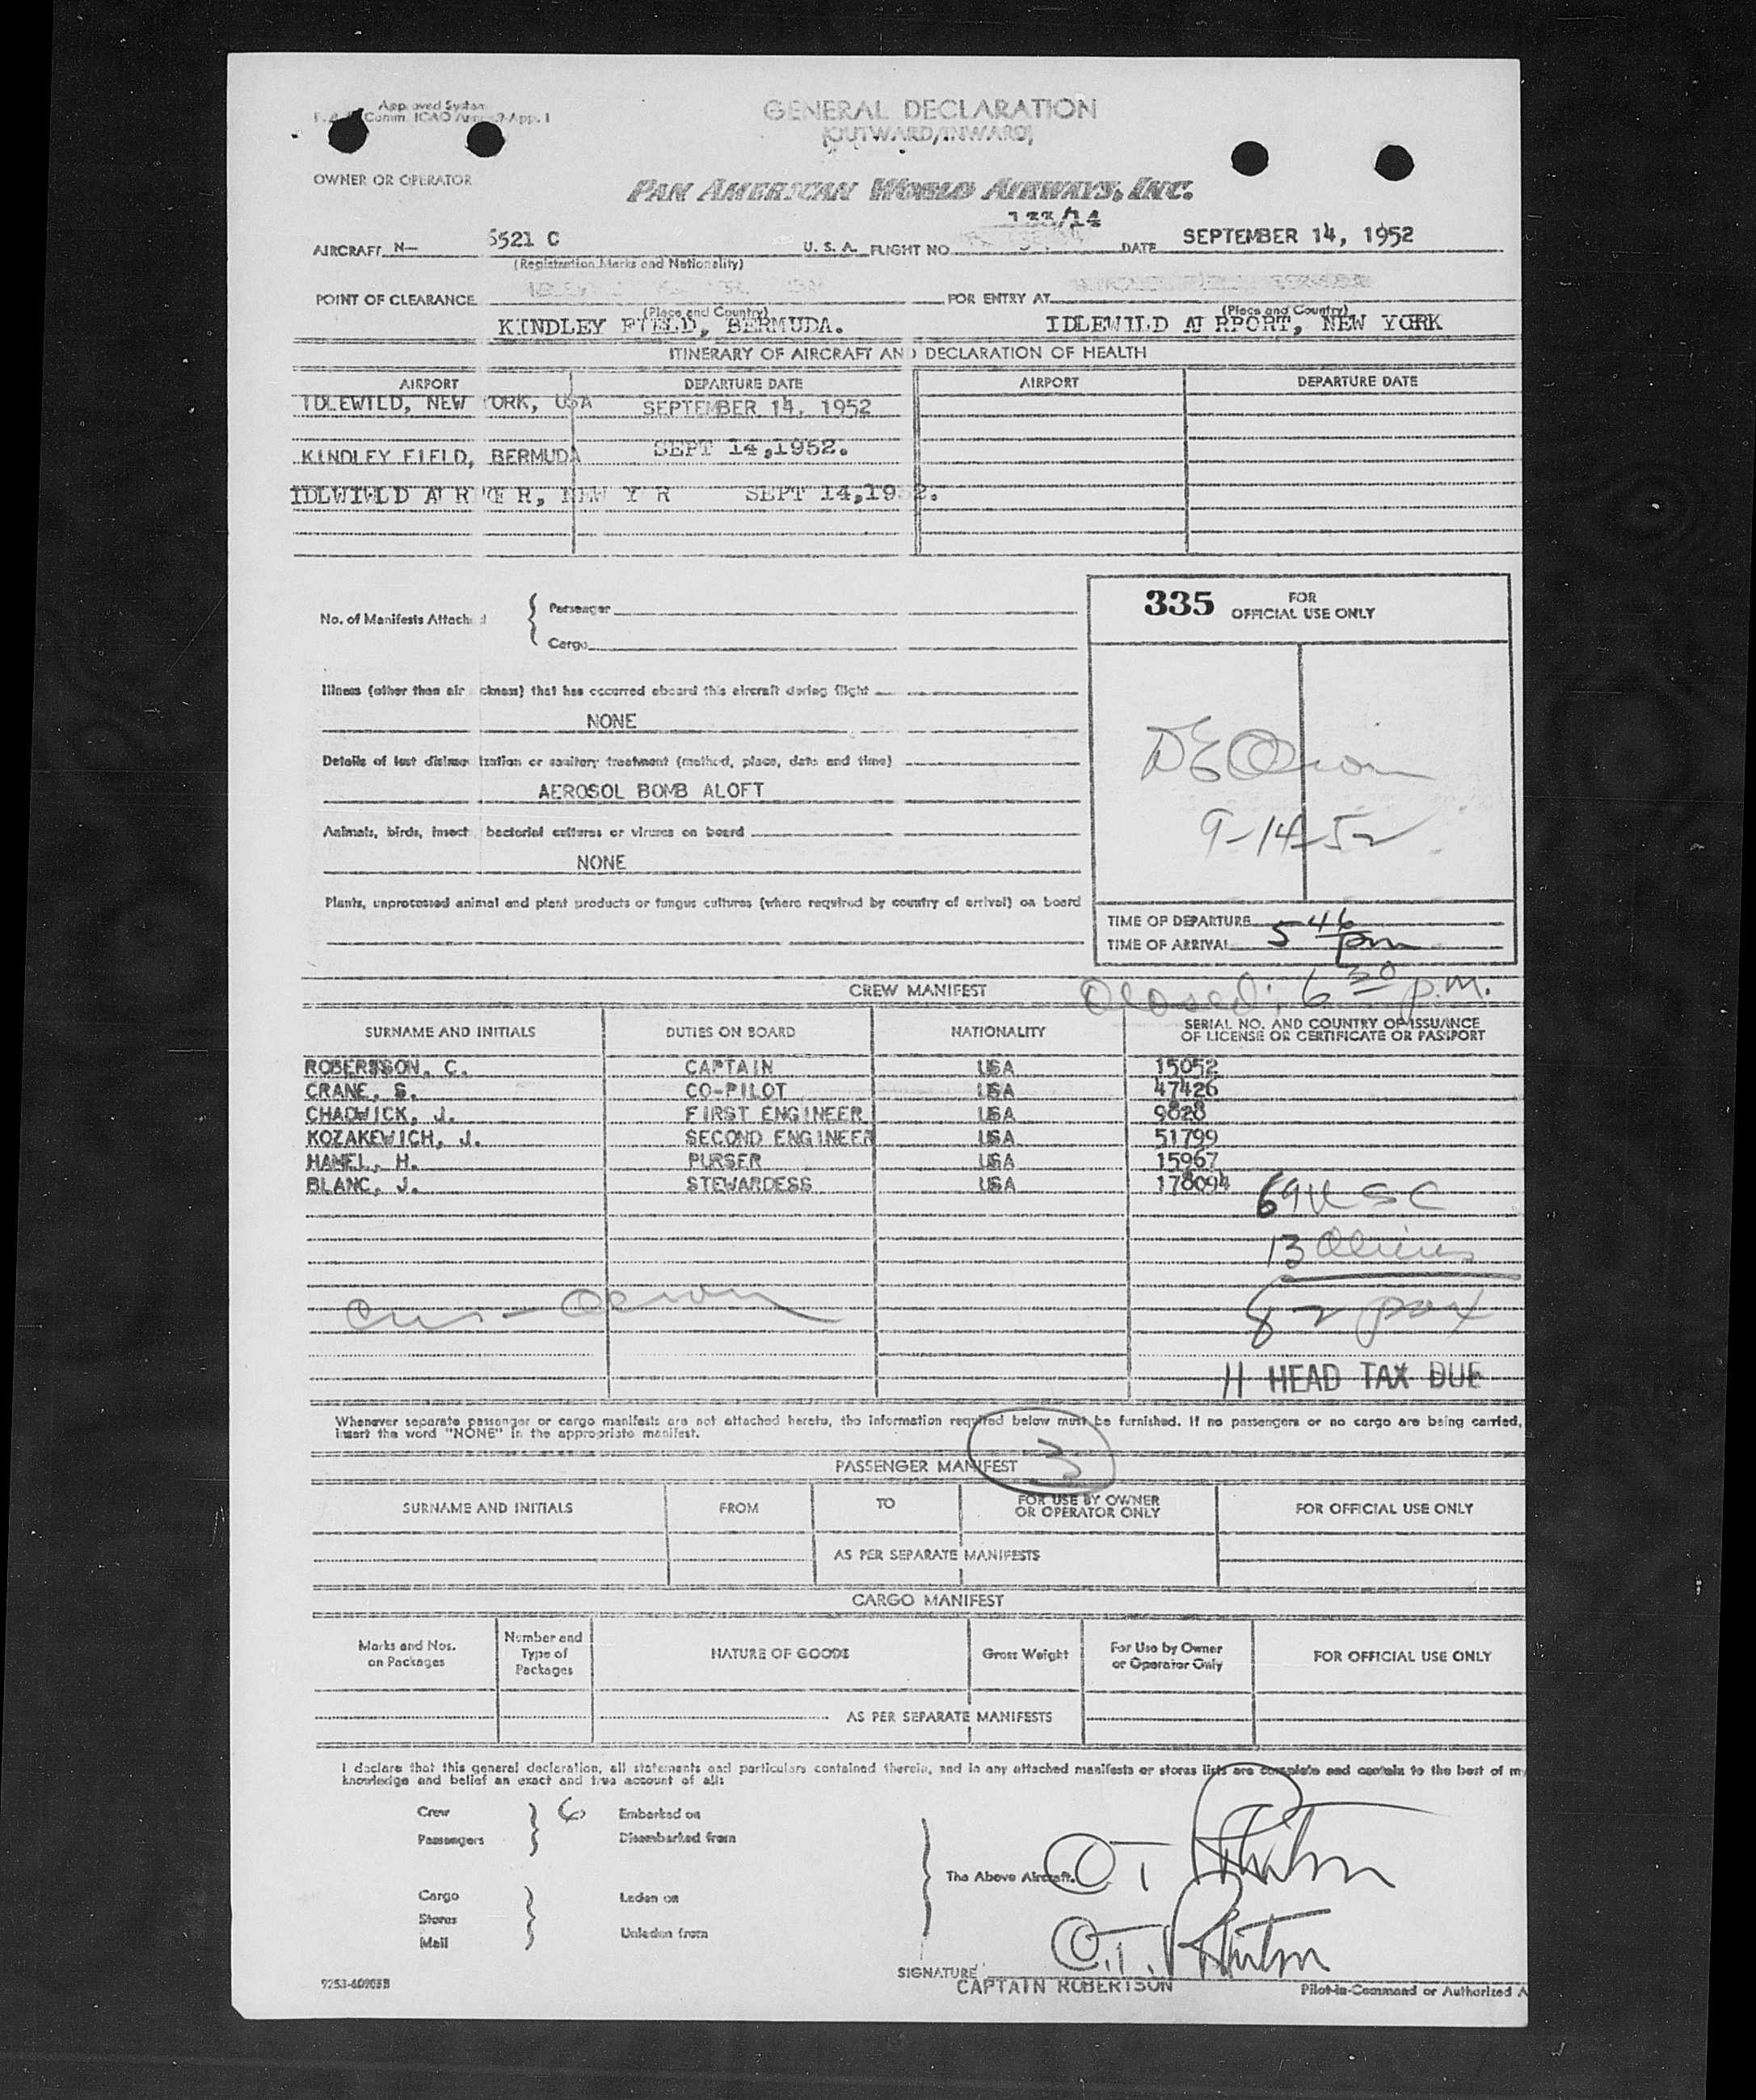 Approved System
Comm. ICAO Annex 9-App. 1
GENERAL DECLARATION
(OUTWARD/INWARD)
OWNER OR OPERATOR
PAN AMERICAN WORLD AIRWAYS, INC.
133/14
AIRCRAFT N— 5521 C U. S. A. FLIGHT NO. DATE SEPTEMBER 14, 1952
(Registration Marks and Nationality)
POINT OF CLEARANCE FOR ENTRY AT
(Place and Country) (Place and Country)
KINDLEY FIELD, BERMUDA. IDLEWILD AI RPORT, NEW YORK
ITINERARY OF AIRCRAFT AND DECLARATION OF HEALTH
AIRPORT DEPARTURE DATE AIRPORT DEPARTURE DATE
IDLEWILD, NEW YORK, USA SEPTEMBER 14, 1952
KINDLEY FIELD, BERMUDA SEPT 14,1952.
IDLWIWLD SEPT 14,1952.
335 FOR
OFFICIAL USE ONLY
No. of Manifests Attached
Passenger
Cargo
Illness (other than air sickness) that has occurred aboard this aircraft during flight
NONE
Details of last disinsectization or sanitary treatment (method, place, date and time)
AEROSOL BOMB ALOFT
9-14-52
Animals, birds, insects, bacterial cultures or viruses on board
NONE
Plants, unprocessed animal and plant products or fungus cultures (where required by country of arrival) on board
TIME OF DEPARTURE
TIME OF ARRIVAL 5 46 pm
Closed: 6 30 p.m.
CREW MANIFEST
SURNAME AND INITIALS DUTIES ON BOARD NATIONALITY SERIAL NO. AND COUNTRY OF ISSUANCE
OF LICENSE OR CERTIFICATE OR PASSPORT
ROBERTSON, C. CAPTAIN USA 15052
CRANE, S. CO-PILOT USA 47426
CHADWICK, J. FIRST ENGINEER USA 9828
KOZAKEWICH, J. SECOND ENGINEER USA 51799
HAMEL, H. PURSER USA 15967
BLANC, J. STEWARDESS USA 178094
69 USC
13 Aliens
82 pax
11 HEAD TAX DUE
Whenever separate passenger or cargo manifests are not attached hereto, the information required below must be furnished. If no passengers or no cargo are being carried,
insert the word "NONE" in the appropriate manifest.
3
PASSENGER MANIFEST
SURNAME AND INITIALS FROM TO FOR USE BY OWNER
OR OPERATOR ONLY FOR OFFICIAL USE ONLY
AS PER SEPARATE MANIFESTS
CARGO MANIFEST
Marks and Nos.
on Packages Number and
Type of
Packages NATURE OF GOODS Gross Weight For Use by Owner
or Operator Only FOR OFFICIAL USE ONLY
AS PER SEPARATE MANIFESTS
I declare that this general declaration, all statements and particulars contained therein, and in any attached manifests or stores lists are complete and contain to the best of my
knowledge and belief an exact and true account of all:
Crew 6 Embarked on
Passengers Disembarked from
The Above Aircraft.
Cargo Laden on
Stores
Mail Unladen from
SIGNATURE
CAPTAIN ROBERTSON
Pilot-in-Command or Authorized A
9253-60903B